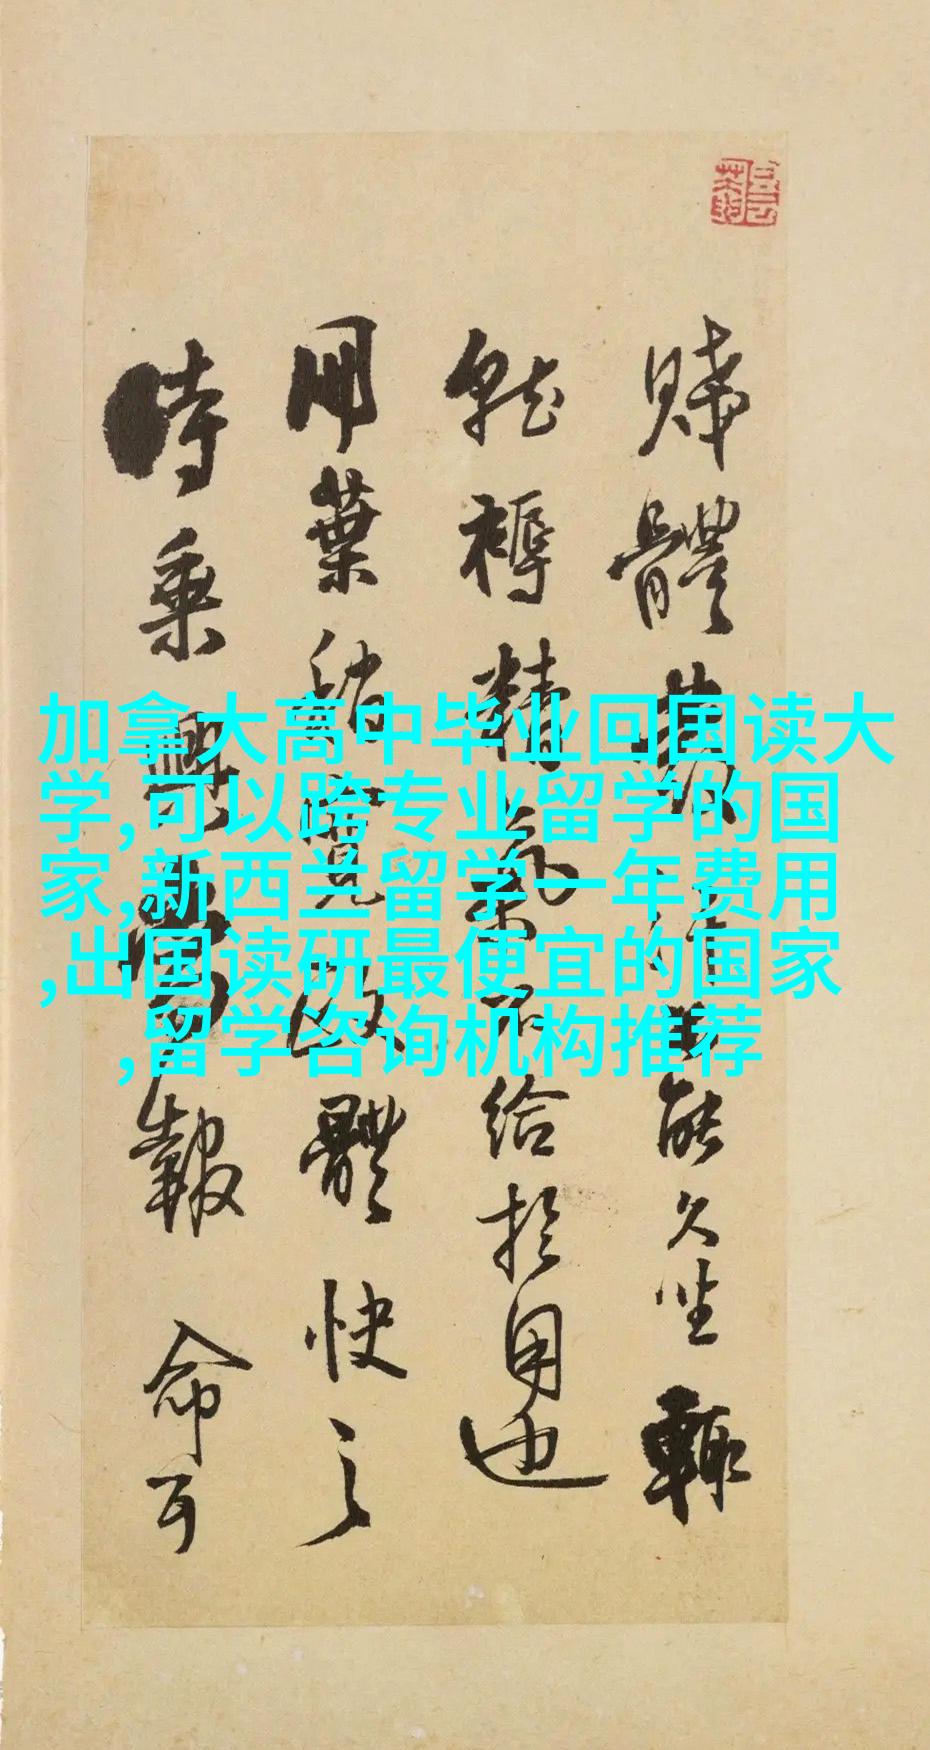 加拿大高中毕业回国读大
学,可以跨专业留学的国
家,新西兰留学一年费用
,出国读研最便宜的国家
,留学咨询机构推荐
賤體
能久坐輙
就褥精氣不給於用也
用葉
體快之
時乘興
報 命耳